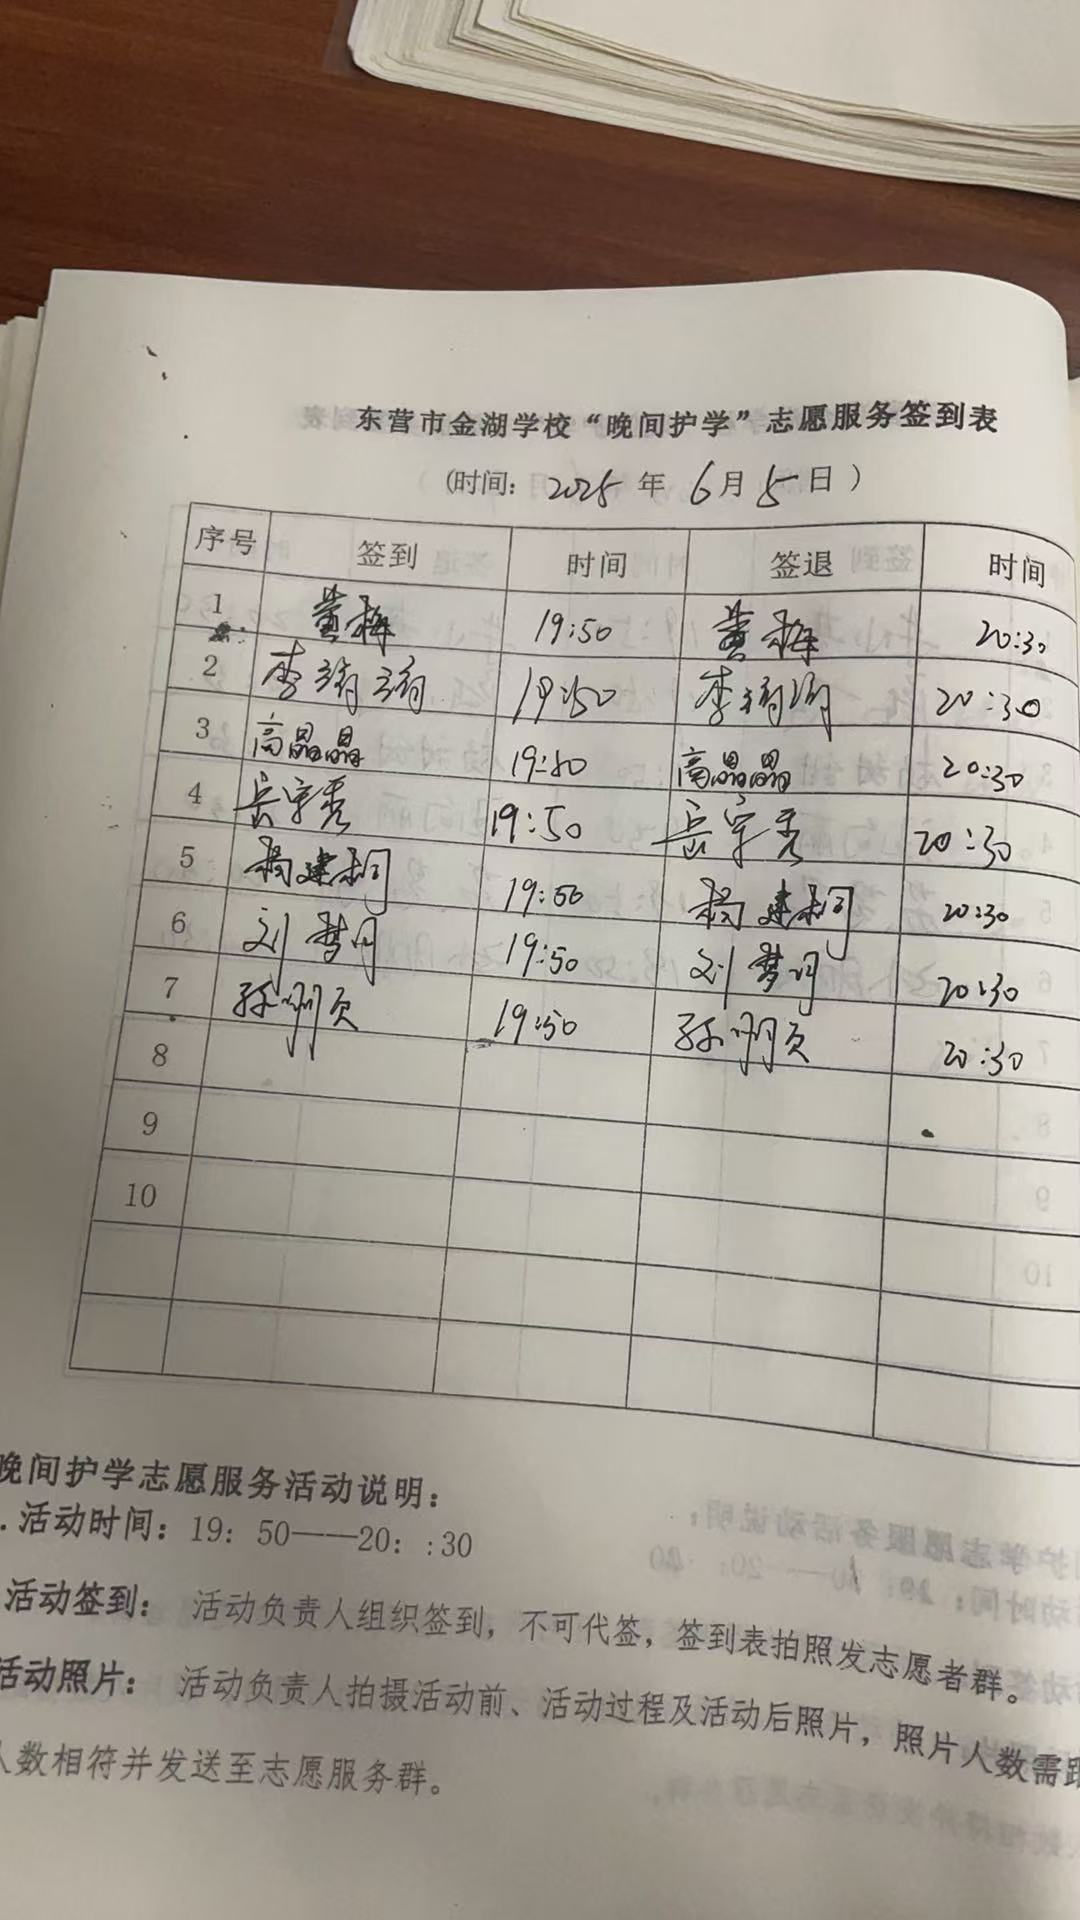 东营市金湖学校“晚间护学”志愿服务签到表
(时间: 2025 年 6月 5日 )
序号 签到 时间 签退 时间
1 黄梅 19:50 黄梅 20:30
2 李 19:50 李 20:30
3 高晶晶 19:50 高晶晶 20:30
4 岳宇秀 19:50 岳宇秀 20:30
5 杨建桐 19:50 杨建桐 20:30
6 刘梦丹 19:50 刘梦丹 20:30
7 孙 19:50 孙 20:30
8
9
10
晚间护学志愿服务活动说明:
.活动时间: 19: 50——20: :30
活动签到: 活动负责人组织签到, 不可代签, 签到表拍照发志愿者群。
活动照片: 活动负责人拍摄活动前、活动过程及活动后照片, 照片人数需跟
人数相符并发送至志愿服务群。